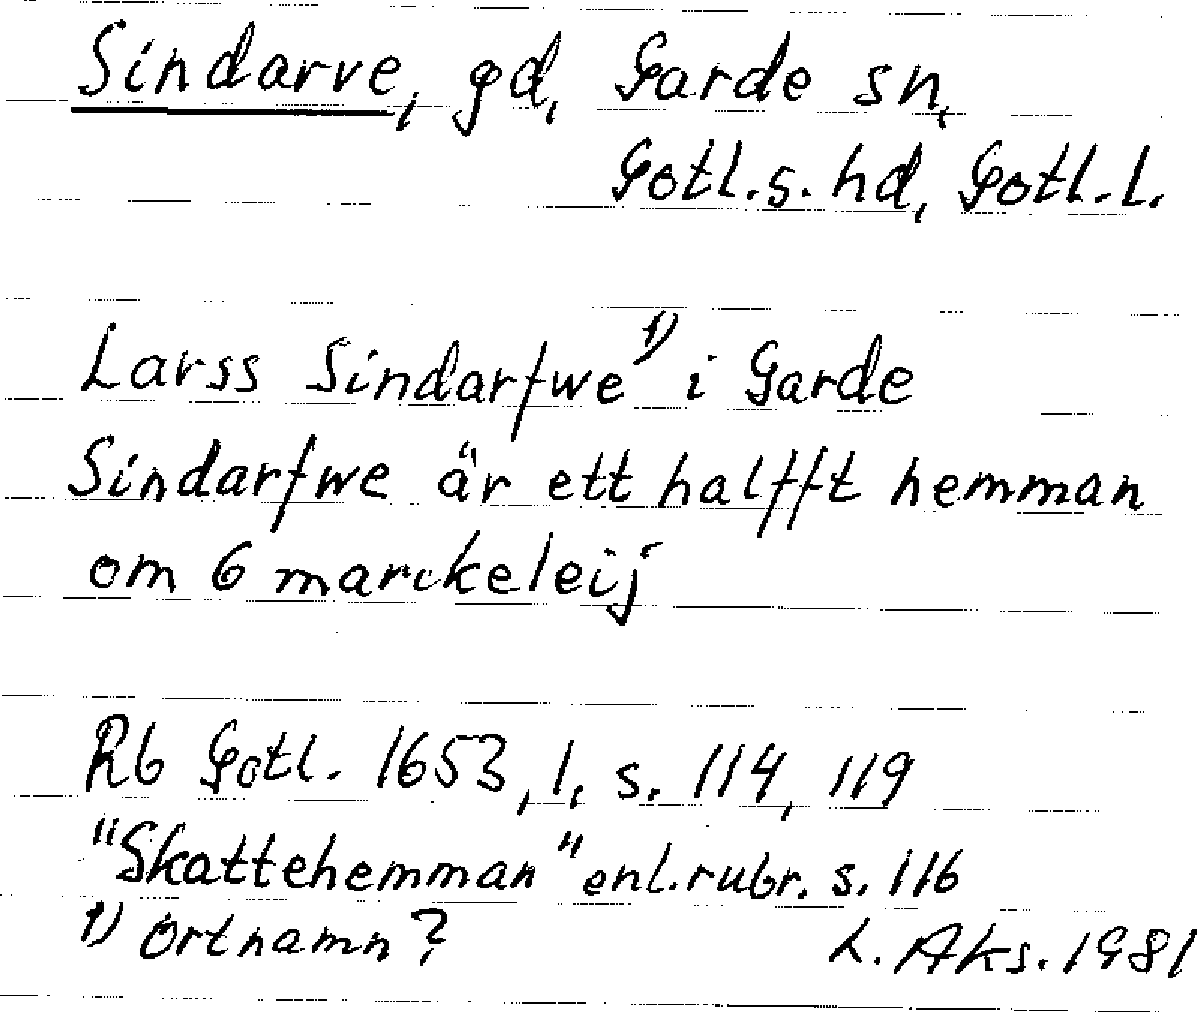 Sindarve, gd, Garde sn,
Gotl.s. hd, Gotl.l.
Larss Sindarfwe 1) i Garde
Sindarfwe är ett halfft hemman
om 6 marckeleij
Rb Gotl. 1653, 1, s. 114, 119
"Skattehemman" enl.rubr. s. 116
1) Ortnamn?
L. Aks. 1981